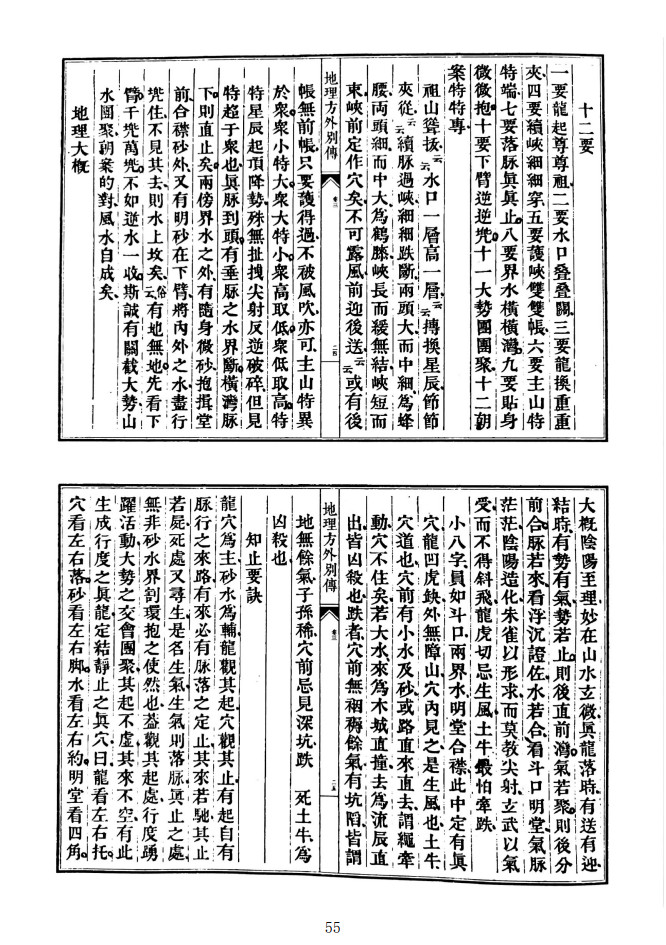 十二要
一要龍起尊尊祖二要水口叠叠關三要龍換重重
夾四要續峽細細穿五要護峽雙雙帳六要主山特
特端七要落脈眞眞止八要界水橫橫灣九要貼身
微微抱十要下臂逆逆兜十一大勢團團聚十二朝
案特特專
祖山聳拔云云水口一層高一層云云摶換星辰節節
夾從云云續脈過峽細細跌斷兩頭大而中細爲蜂
腰兩頭細而中大爲鶴膝峽長而緩無結峽短而
束峽前定作穴矣不可露風前迎後送云云或有後
地理方外別傳
卷三
二四
帳無前帳只要護得過不被風吹亦可主山特異
於衆衆小特大衆大特小衆高取低衆低取高特
特星辰起頂降勢殊無扯拽尖射反逆破碎但見
特超于衆也眞脈到頭有垂脈之水界斷橫灣脈
下則直止矣兩傍界水之外有隨身微砂抱揖堂
前合襟砂外又有明砂在下臂將內外之水盡行
兜住不見其去則水上坟矣俗云有地無地先看下
臂千兜萬兜不如逆水一收斯誠有關截大勢山
水團聚朝案的對風水自成矣
地理大槪
大槪陰陽至理妙在山水玄微眞龍落時有送有迎
結時有勢有氣勢若止則後直前灣氣若聚則後分
前合脈若來看浮沉證佐水若合看斗口明堂氣脈
茫茫陰陽造化朱雀以形求而莫敎尖射玄武以氣
受而不得斜飛龍虎切忌生風土牛最怕牽跌
小八字員如斗口兩界水明堂合襟此中定有眞
穴龍凹虎缺外無障山穴內見之是生風也土牛
穴道也穴前有小水及砂或路直來直去謂繩牽
動穴不住矣若大水來爲木城直撞去爲流辰直
出皆凶殺也跌者穴前無裀褥餘氣有坑陷皆謂
地理方外別傳
卷三
二五
地無餘氣子孫稀穴前忌見深坑跌 死土牛爲
凶殺也
知止要訣
龍穴爲主砂水爲輔龍觀其起穴觀其止有起自有
脈行之來路有來必有脈落之定止其來若馳其止
若屍死處又尋生是名生氣生氣則落脈眞止之處
無非砂水界割環抱之使然也葢觀其起處行度踴
躍活動大勢之交會團聚其起不虛其來不空有此
生成行度之眞龍定結靜止之眞穴曰龍看左右托
穴看左右落砂看左右脚水看左右約明堂看四角
55